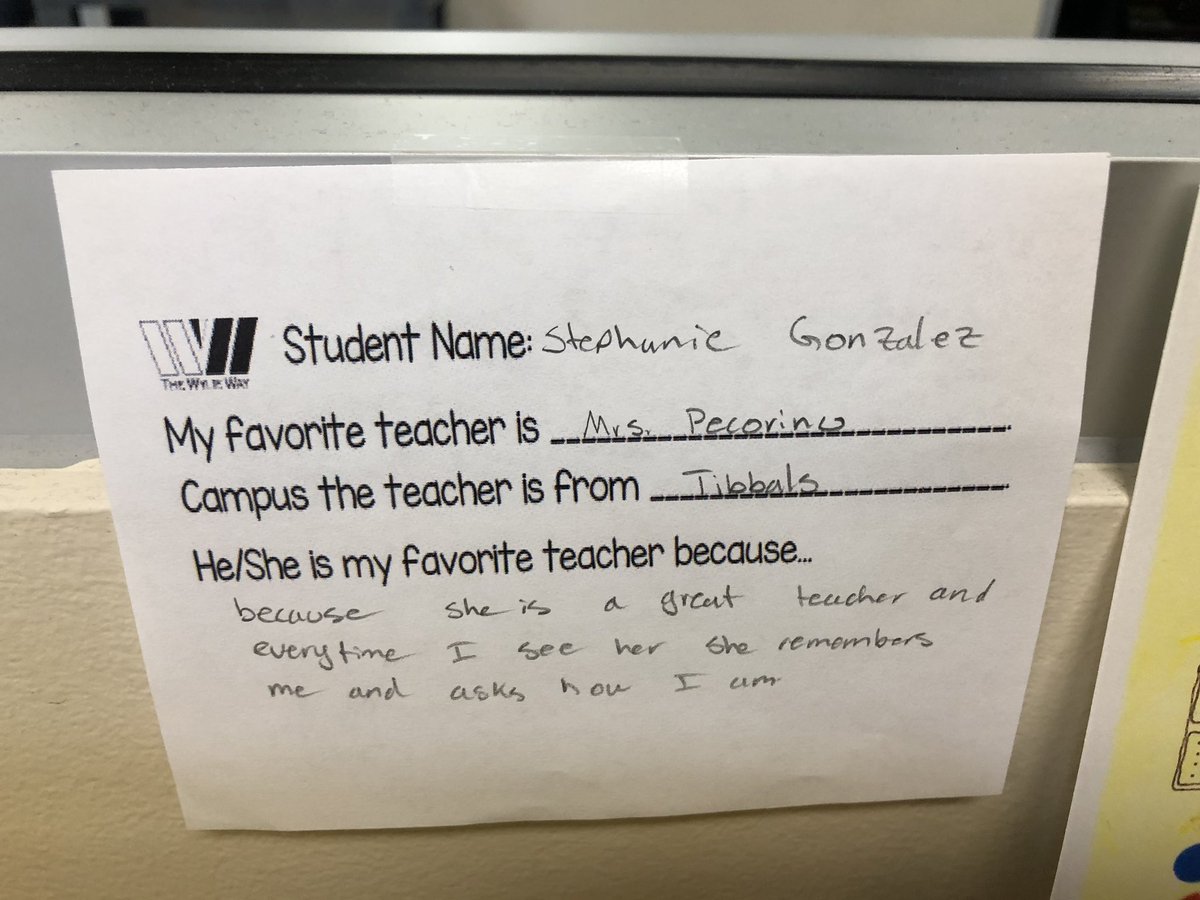 THE WYLIE WAY
Student Name: Stephanie Gonzalez
My favorite teacher is Mrs. Pecorino
Campus the teacher is from Tibbals
He/She is my favorite teacher because...
because she is a great teacher and
everytime I see her she remembers
me and asks how I am